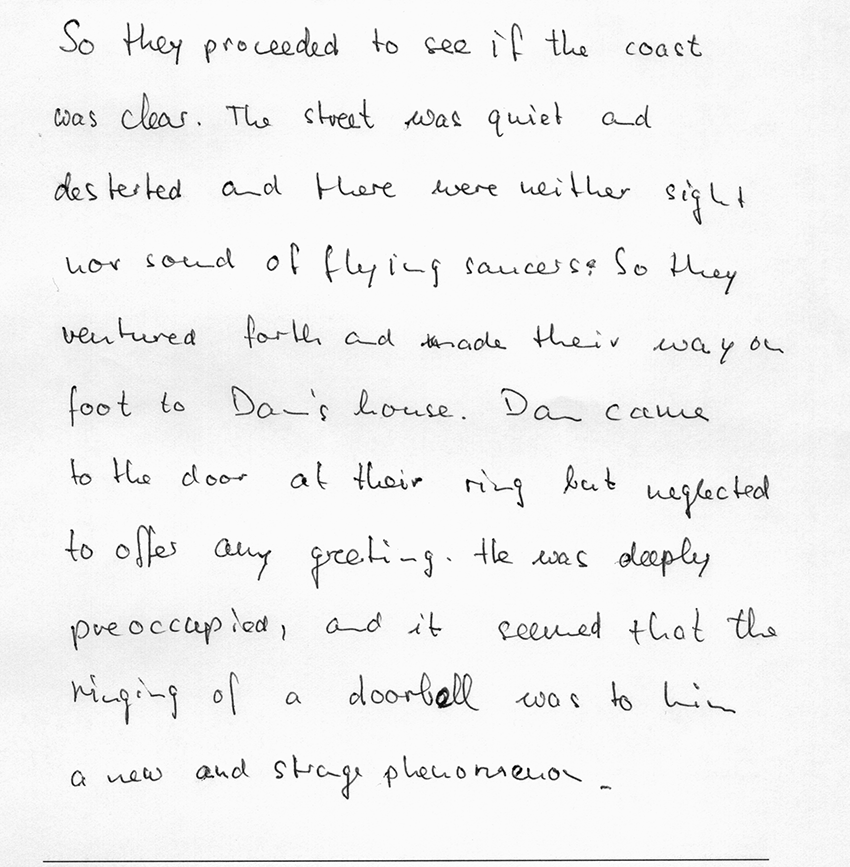 So they proceeded to see if the coast
was clear. The street was quiet and
desterted and there were neither sight
nor sound of flying saucers. So they
ventured forth and made their way on
foot to Dan's house. Dan came
to the door at their ring but neglected
to offer any greeting. He was deeply
preoccupied, and it seemed that the
ringing of a doorbell was to him
a new and strage phenomenon.